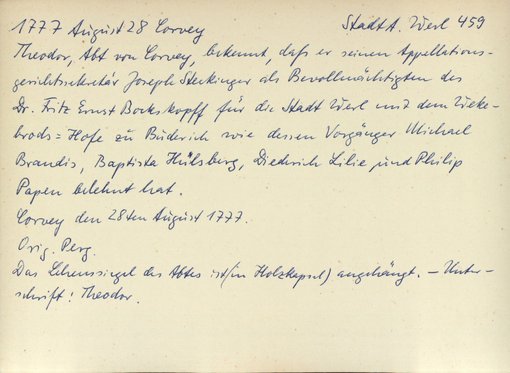 1777 August 28 Corvey StadtA. Werl 459
Theodor, Abt von Corvey, bekennt, daß er seinen Appellations-
gerichtssekretär Joseph als Bevollmächtigten des
Dr. Fritz Ernst Bockskopff für die Stadt Werl mit dem
brods=Hofe zu Büderich wie dessen Vorgänger Michael
Brandis, Baptista Hülsberg, Diederich Lilie und Philip
Papen belehnt hat.
Corvey den 28ten August 1777.
Orig. Perg.
Das Lehenssiegel des Abtes ist (in Holzkapsel) angehängt. – Unter-
schrift: Theodor.